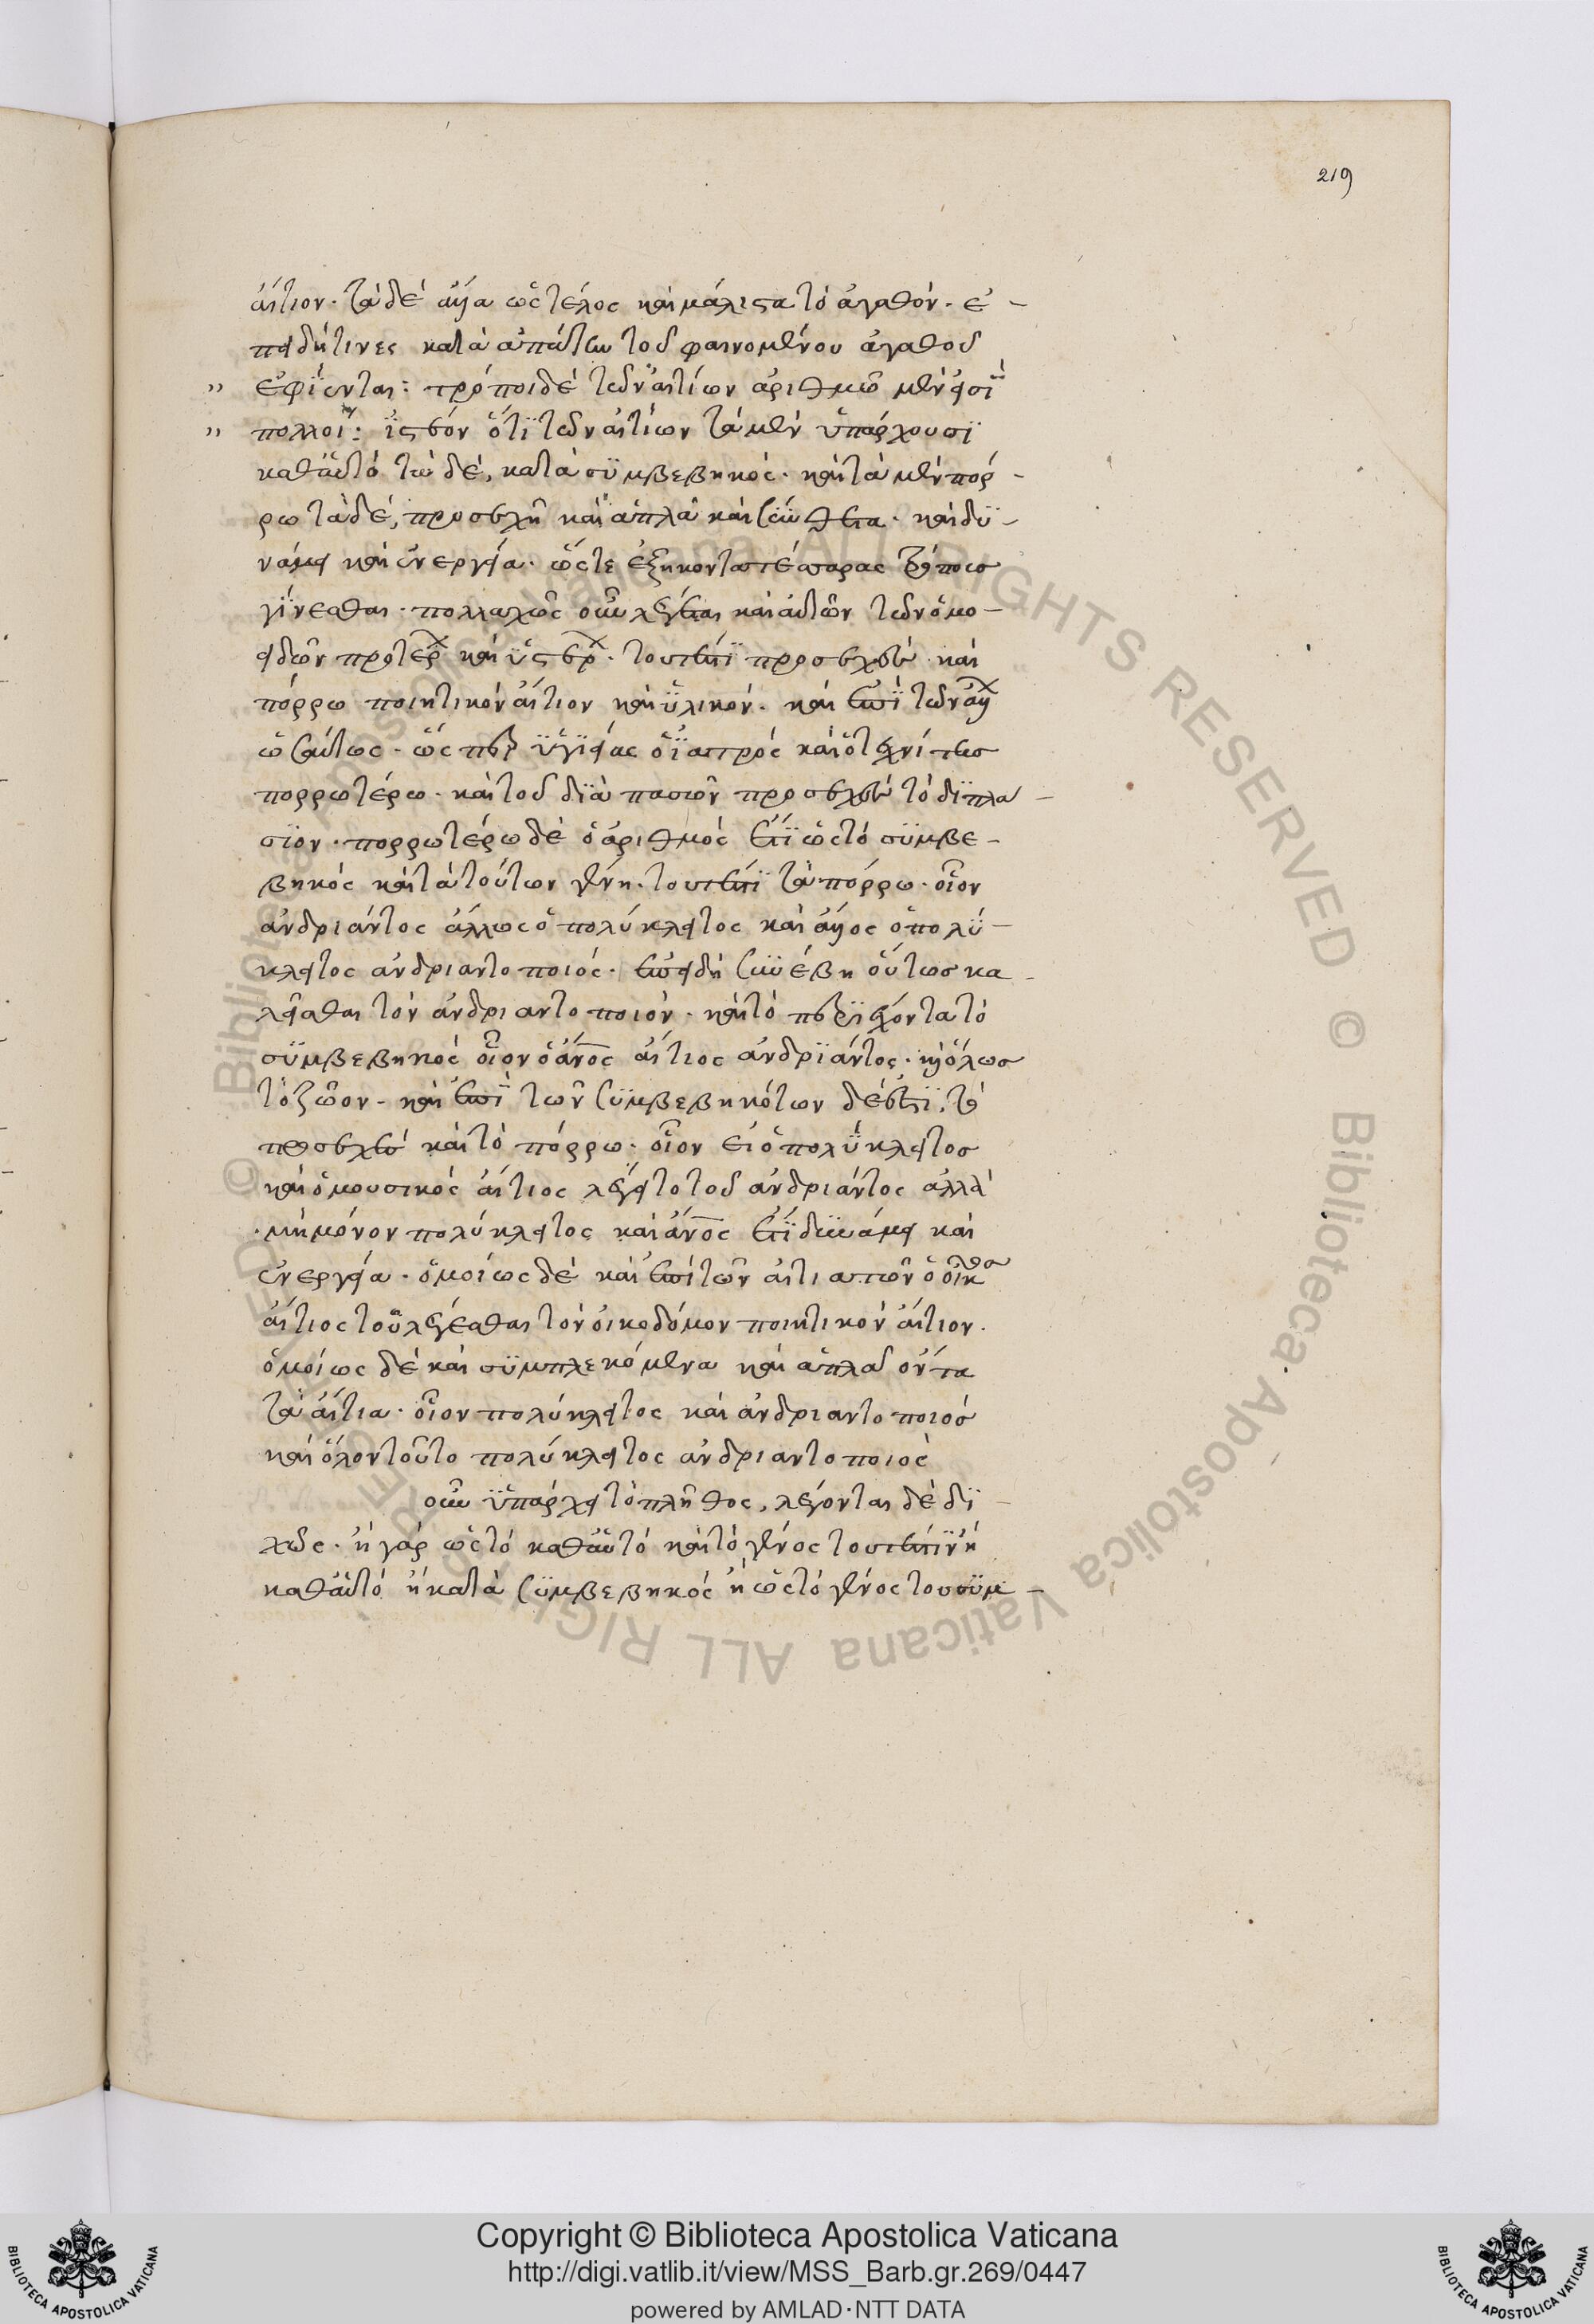 219
αἴτιον· τὰ δὲ ἄλλα ὡς τέλος καὶ μάλιστα τὸ ἀγαθόν· ἐ-
πειδή τινες κατὰ ἀπάτην τοῦ φαινομένου ἀγαθοῦ
" ἐφίενται: τρόποι δὲ τῶν αἰτίων ἀριθμῷ μέν εἰσϊ
" πολλοῒ: ἰστέον ὅτϊ τῶν αἰτίων τὰ μὲν ὑπάρχουσϊ
καθαυτό τὰ δὲ, κατὰ σϋμβεβηκός· καὶ τὰ μὲν πόρ-
ρω τὰ δὲ, προσεχῆ καὶ ἁπλᾶ καὶ σύνθετα· καὶ δϋ-
νάμει καὶ ἐνεργεία· ὥστε ἑξηκοντατέσσαρας τρόπους
γΐνεσθαι· πολλαχῶς οὖν λέγεται καὶ αὐτῶν τῶν ὁμο-
ειδῶν προτερ καὶ ὑστερ· τουτέστϊ προσεχὲς καὶ
πόρρω ποιητικὸν αἴτιον καὶ ὑλικόν· καὶ ἐπῒ τῶν ἄλλ
ὡσαύτως· ὥσπερ ὑγϊείας ὁ ἰατρός καὶ ὁ τεχνίτης
πορρωτέρω· καὶ τοῦ δϊὰ πασῶν προσεχὲς τὸ δϊπλά-
σϊον· πορρωτέρω δὲ ὁ ἀριθμός ἔτϊ ὡς τὸ σϋμβε-
βηκός καὶ τὰ τούτων γένη· τουτέστϊ τὰ πόρρω· οἷον
ἀνδριάντος ἄλλως ὁ πολύκλειτος καὶ ἄλλος ὁ πολύ-
κλειτος ἀνδριαντοποιός· ἐπειδὴ συνέβη οὕτως κα-
λεῖσθαι τὸν ἀνδριαντοποιόν· καὶ τὸ περϊέχοντα τὸ
σϋμβεβηκός οἷον ὁ ἄνος αἴτιος ἀνδρϊάντος· καὶ ὅλως
τὸ ζῶον· καὶ ἐπῒ τῶν σϋμβεβηκότων δέ ἐστϊ, τὸ
προσεχὲς καὶ τὸ πόρρω· οἷον εἰ ὁ πολύκλειτος
καὶ ὁ μουσικός αἴτιος λέγειτο τοῦ ἀνδριάντος ἀλλὰ
·μὴ μόνον πολύκλειτος καὶ ἄνος ἔτϊ δυνάμει καὶ
ἐνεργεία· ὁμοίως δὲ καὶ ἐπὶ τῶν αἰτιατῶν ὁ
αἴτιος τοῦ λέγεσθαι τὸν οἰκοδόμον ποιητικὸν αἴτιον·
ὁμοίως δὲ καὶ σϋμπλεκόμενα καὶ ἁπλᾶ ὄντα
τὰ αἴτια· οἷον πολύκλειτος καὶ ἀνδριαντοποιός
καὶ ὅλον τοῦτο πολύκλειτος ἀνδριαντοποιός
οὖν ὑπάρχει τὸ πλῆθος, λέγονται δὲ δϊ-
χῶς· ἢ γὰρ ὡς τὸ καθαυτό καὶ τὸ γένος τουτέστιν ἢ
καθαυτό ἢ κατὰ σϋμβεβηκός ἢ ὡς τὸ γένος του σϋμ-
Copyright © Biblioteca Apostolica Vaticana
http://digi.vatlib.it/view/MSS_Barb.gr.269/0447
powered by AMLAD·NTT DATA